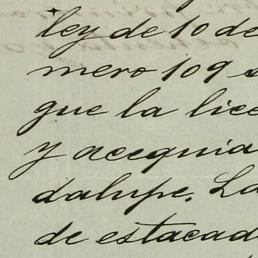 ley de 10 de
mero 109
que la lice
y acequia
dalupe. La
de estacad